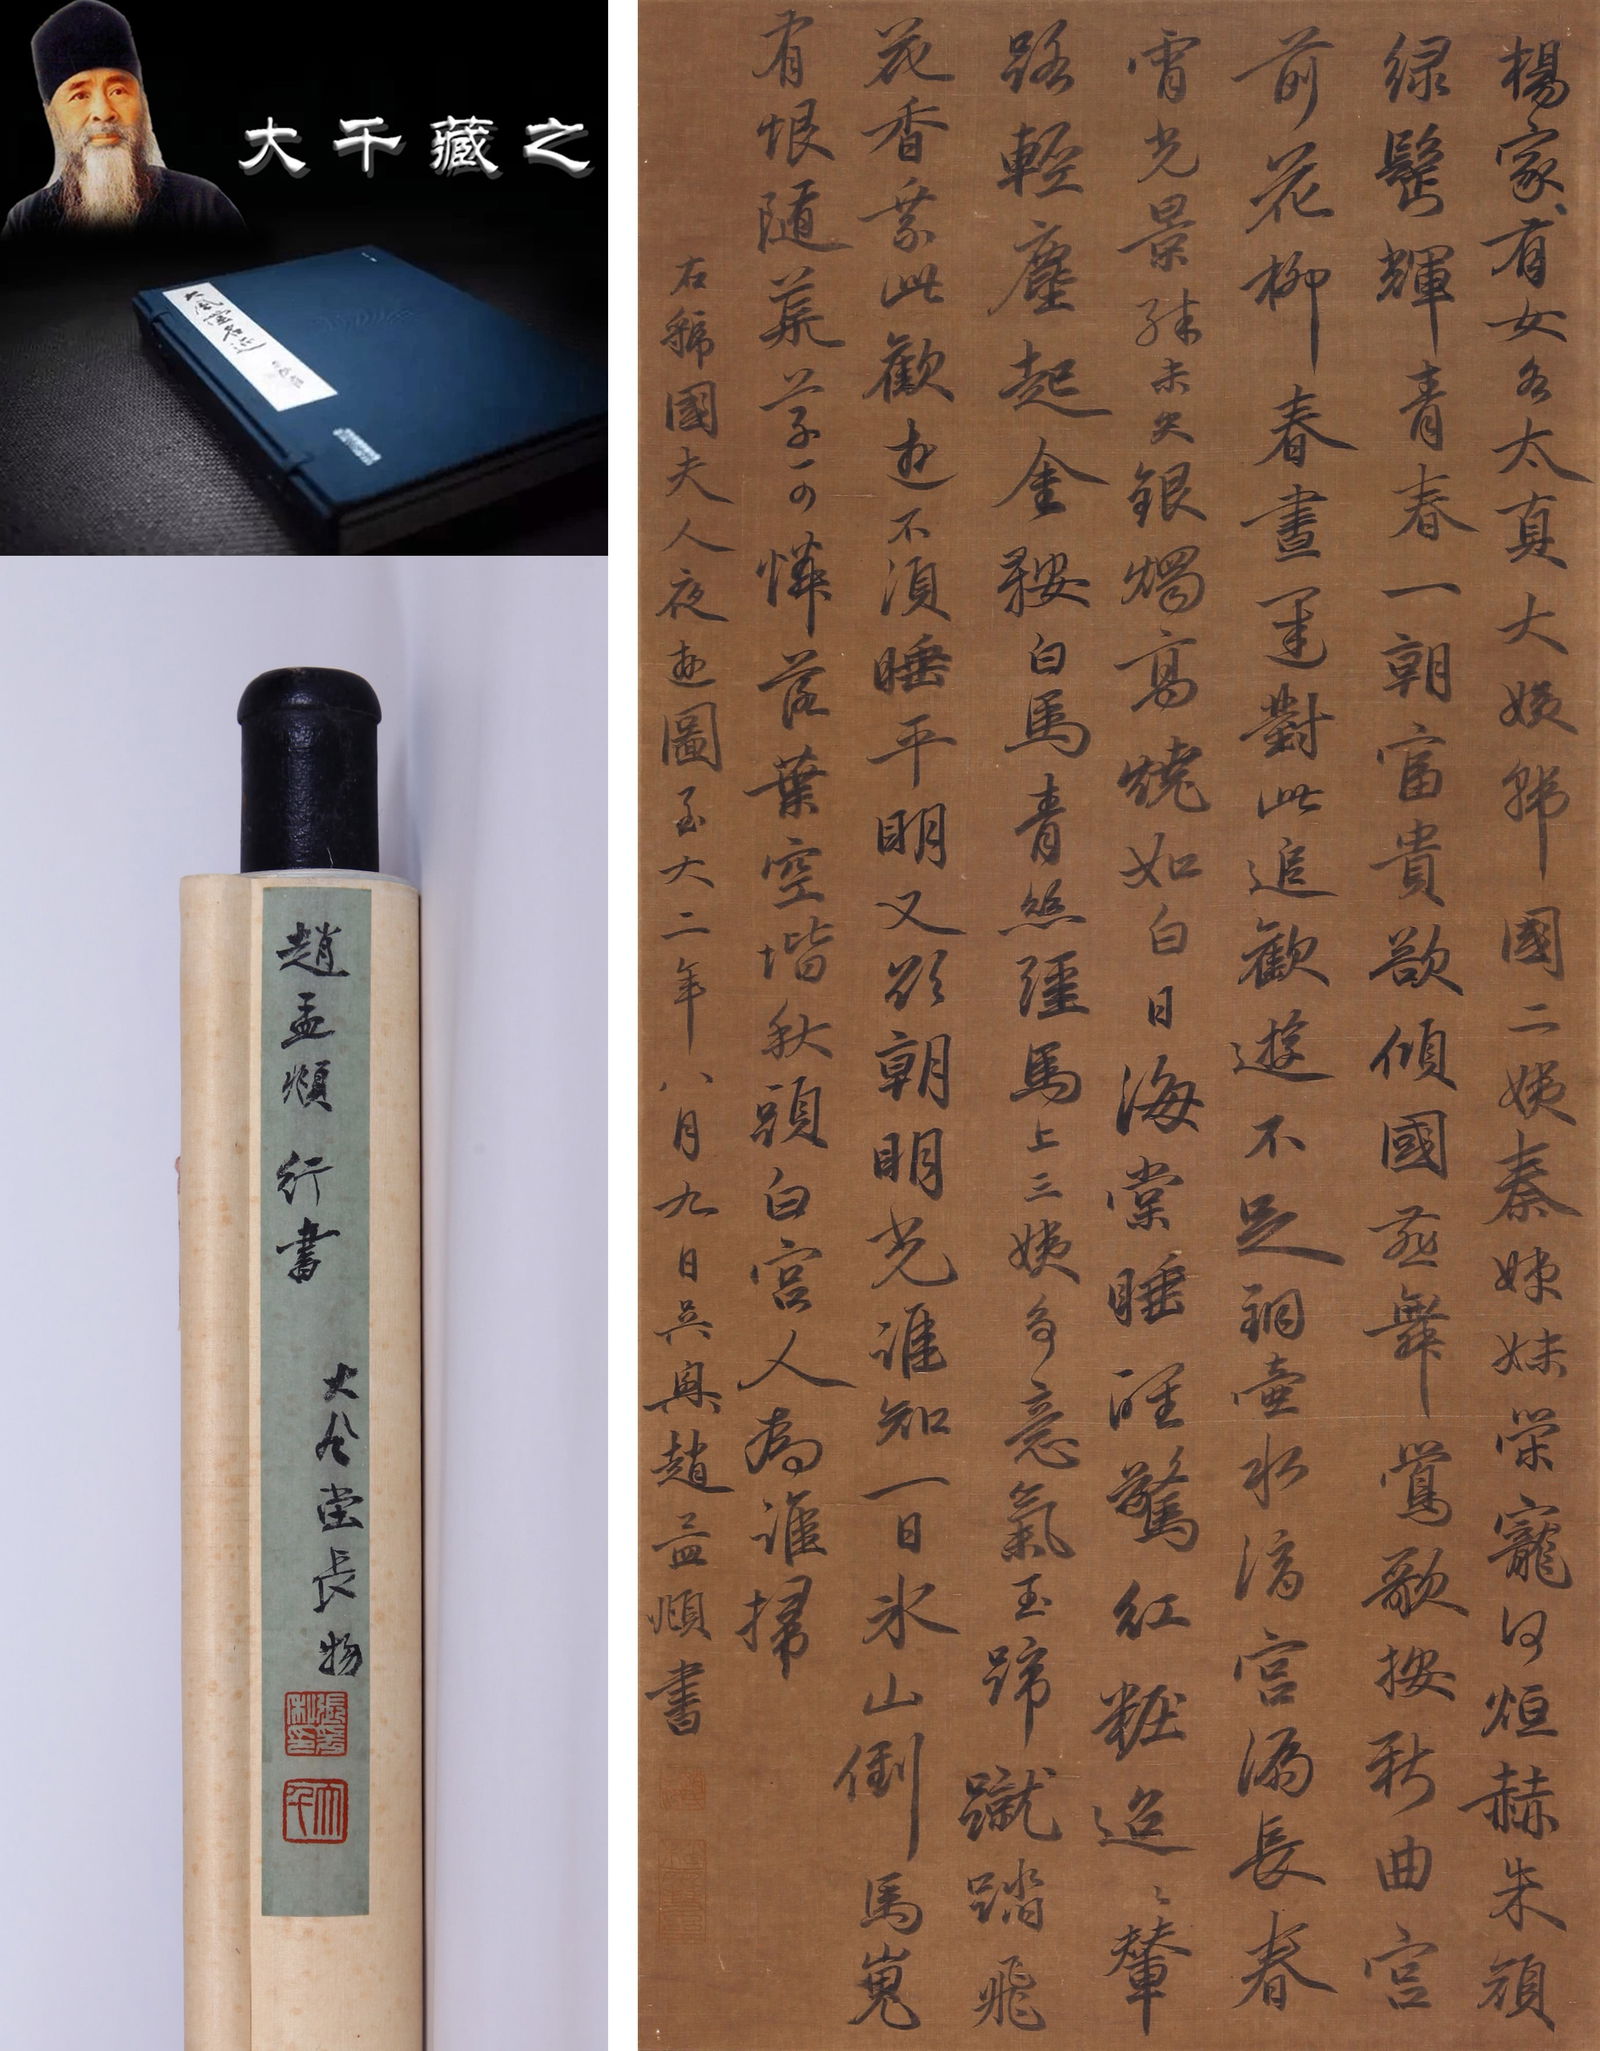 大千藏之
大风堂名迹
趙孟頫 行書
大风堂長物
楊家有女名太真大姨號國二姨秦姊妹榮寵何烜赫朱顔
緑鬓輝青春一朝富貴欲傾國燕舞鶯歌按新曲宮
前花柳春晝遲對此追歡遊不足銅壺水滴宮漏長春
宵光景殊未央銀燭高燒如白日海棠睡醒驚紅粧迢々輦
路輕塵起金鞍白馬青絲韁馬上三姨多意氣玉蹄蹴踏飛
花香乘此歡遊不須睡平明又欲朝明光誰知一日氷山倒馬嵬
有恨隨荒草可憐落葉空堦秋頭白宮人為誰掃
右虢國夫人夜遊圖至大二年八月九日吳興趙孟頫書